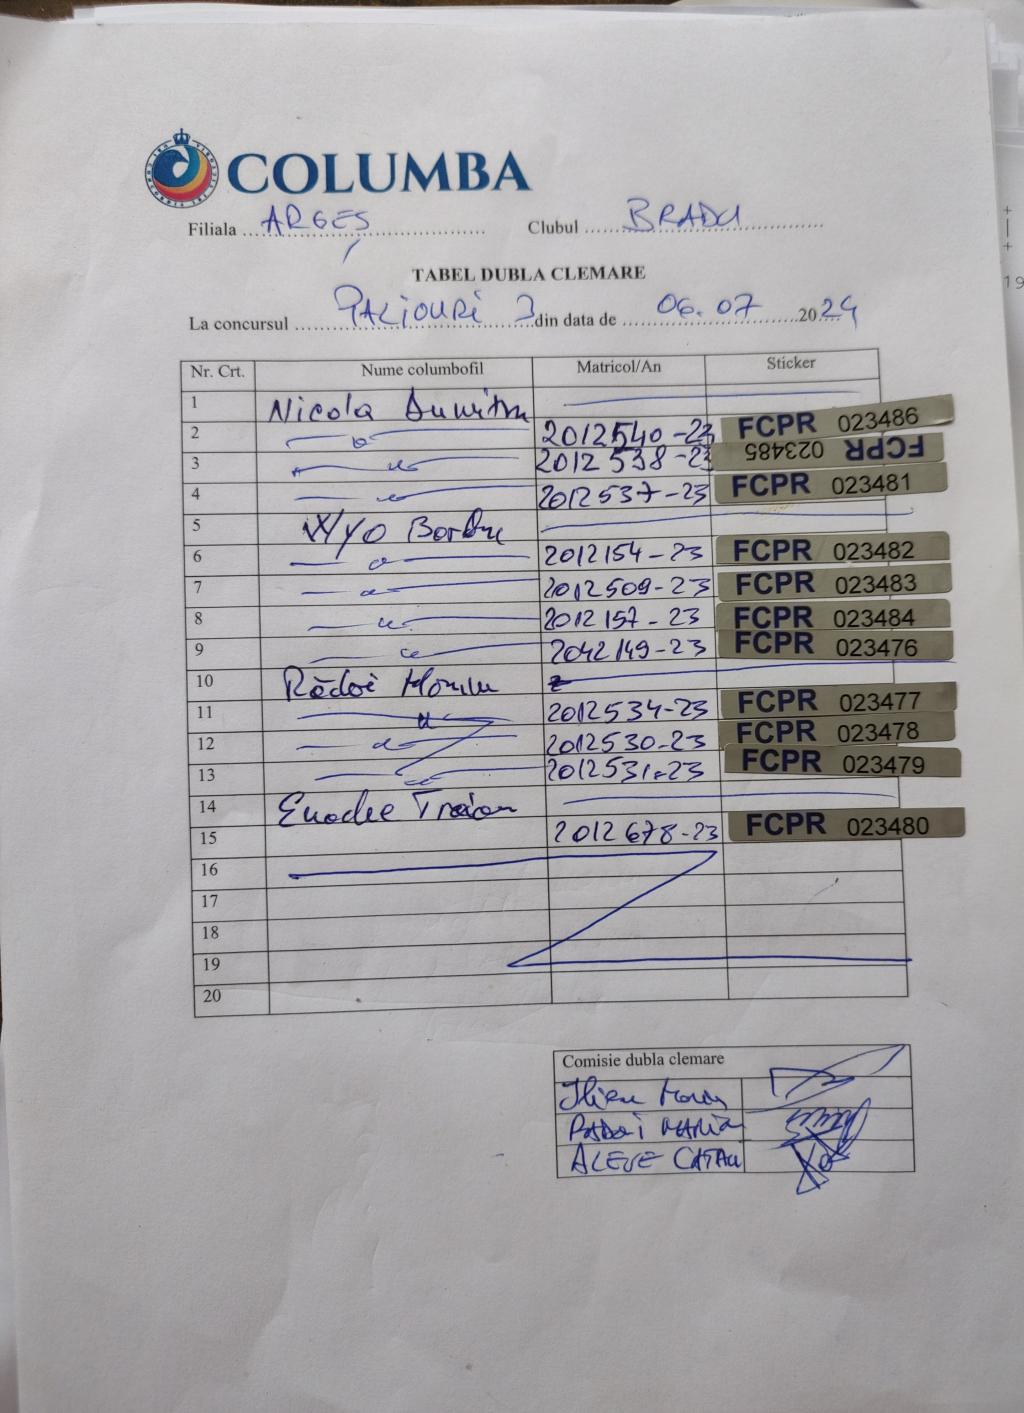 COLUMBA
Filiala ARGEȘ Clubul BRADU
TABEL DUBLA CLEMARE
La concursul PALIOURI 3 din data de 06.07 2024
Nr. Crt. Nume columbofil Matricol/An Sticker
1 Nicola Dumitru
2 2012540-23 FCPR 023486
3 2012538-23 FCPR 023485
4 2012537-23 FCPR 023481
5
6 2012154-23 FCPR 023482
7 2012509-23 FCPR 023483
8 2012157-23 FCPR 023484
9 2042149-23 FCPR 023476
10 Rădoi
11 2012534-23 FCPR 023477
12 2012530-23 FCPR 023478
13 2012531-23 FCPR 023479
14 Enache Traian
15 2012678-23 FCPR 023480
16
17
18
19
20
Comisie dubla clemare
RADOI MARIA
ALEXE